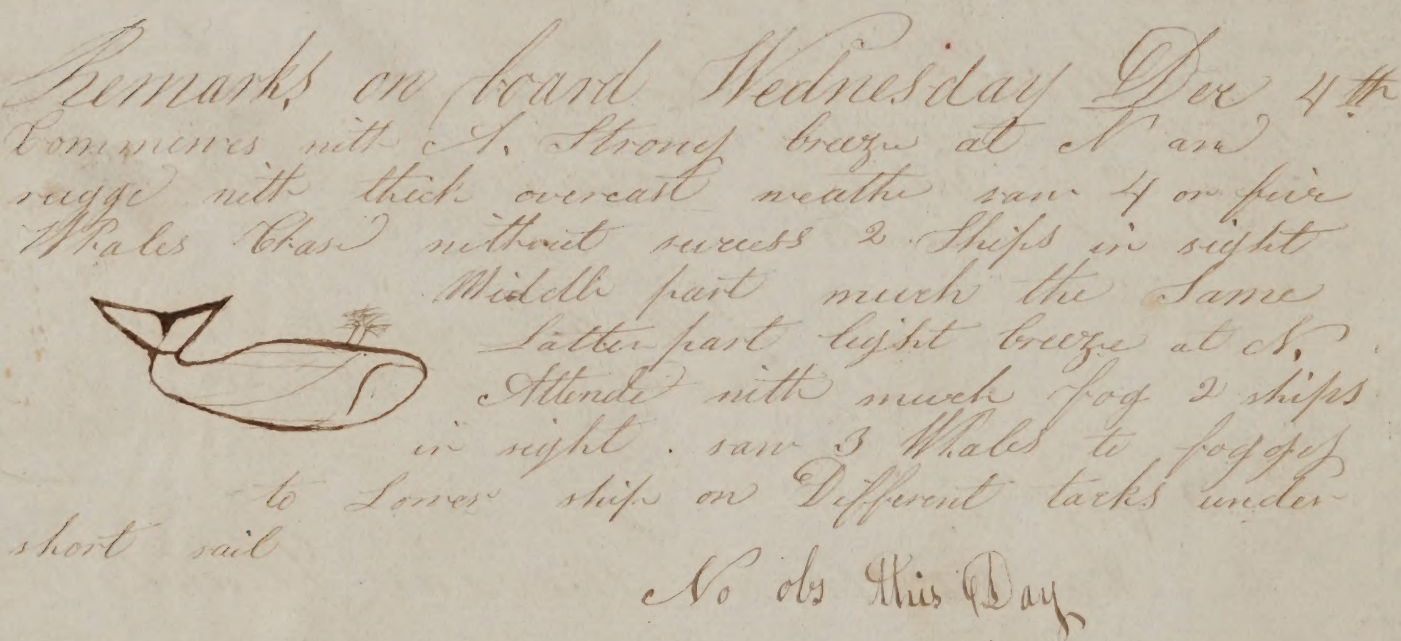 Remarks on board Wednesday Dec 4th
Commences with A. Strong breeze at N an
rugge with thick overcast weathe saw 4 or five
Whales Chase without success 2 Ships in sight
Middle part much the Same
Latter part light breeze at N.
Attende with much fog 2 ships
in sight. saw 3 Whales to foggy
to Lower ship on Different tacks under
short sail
No obs this Day